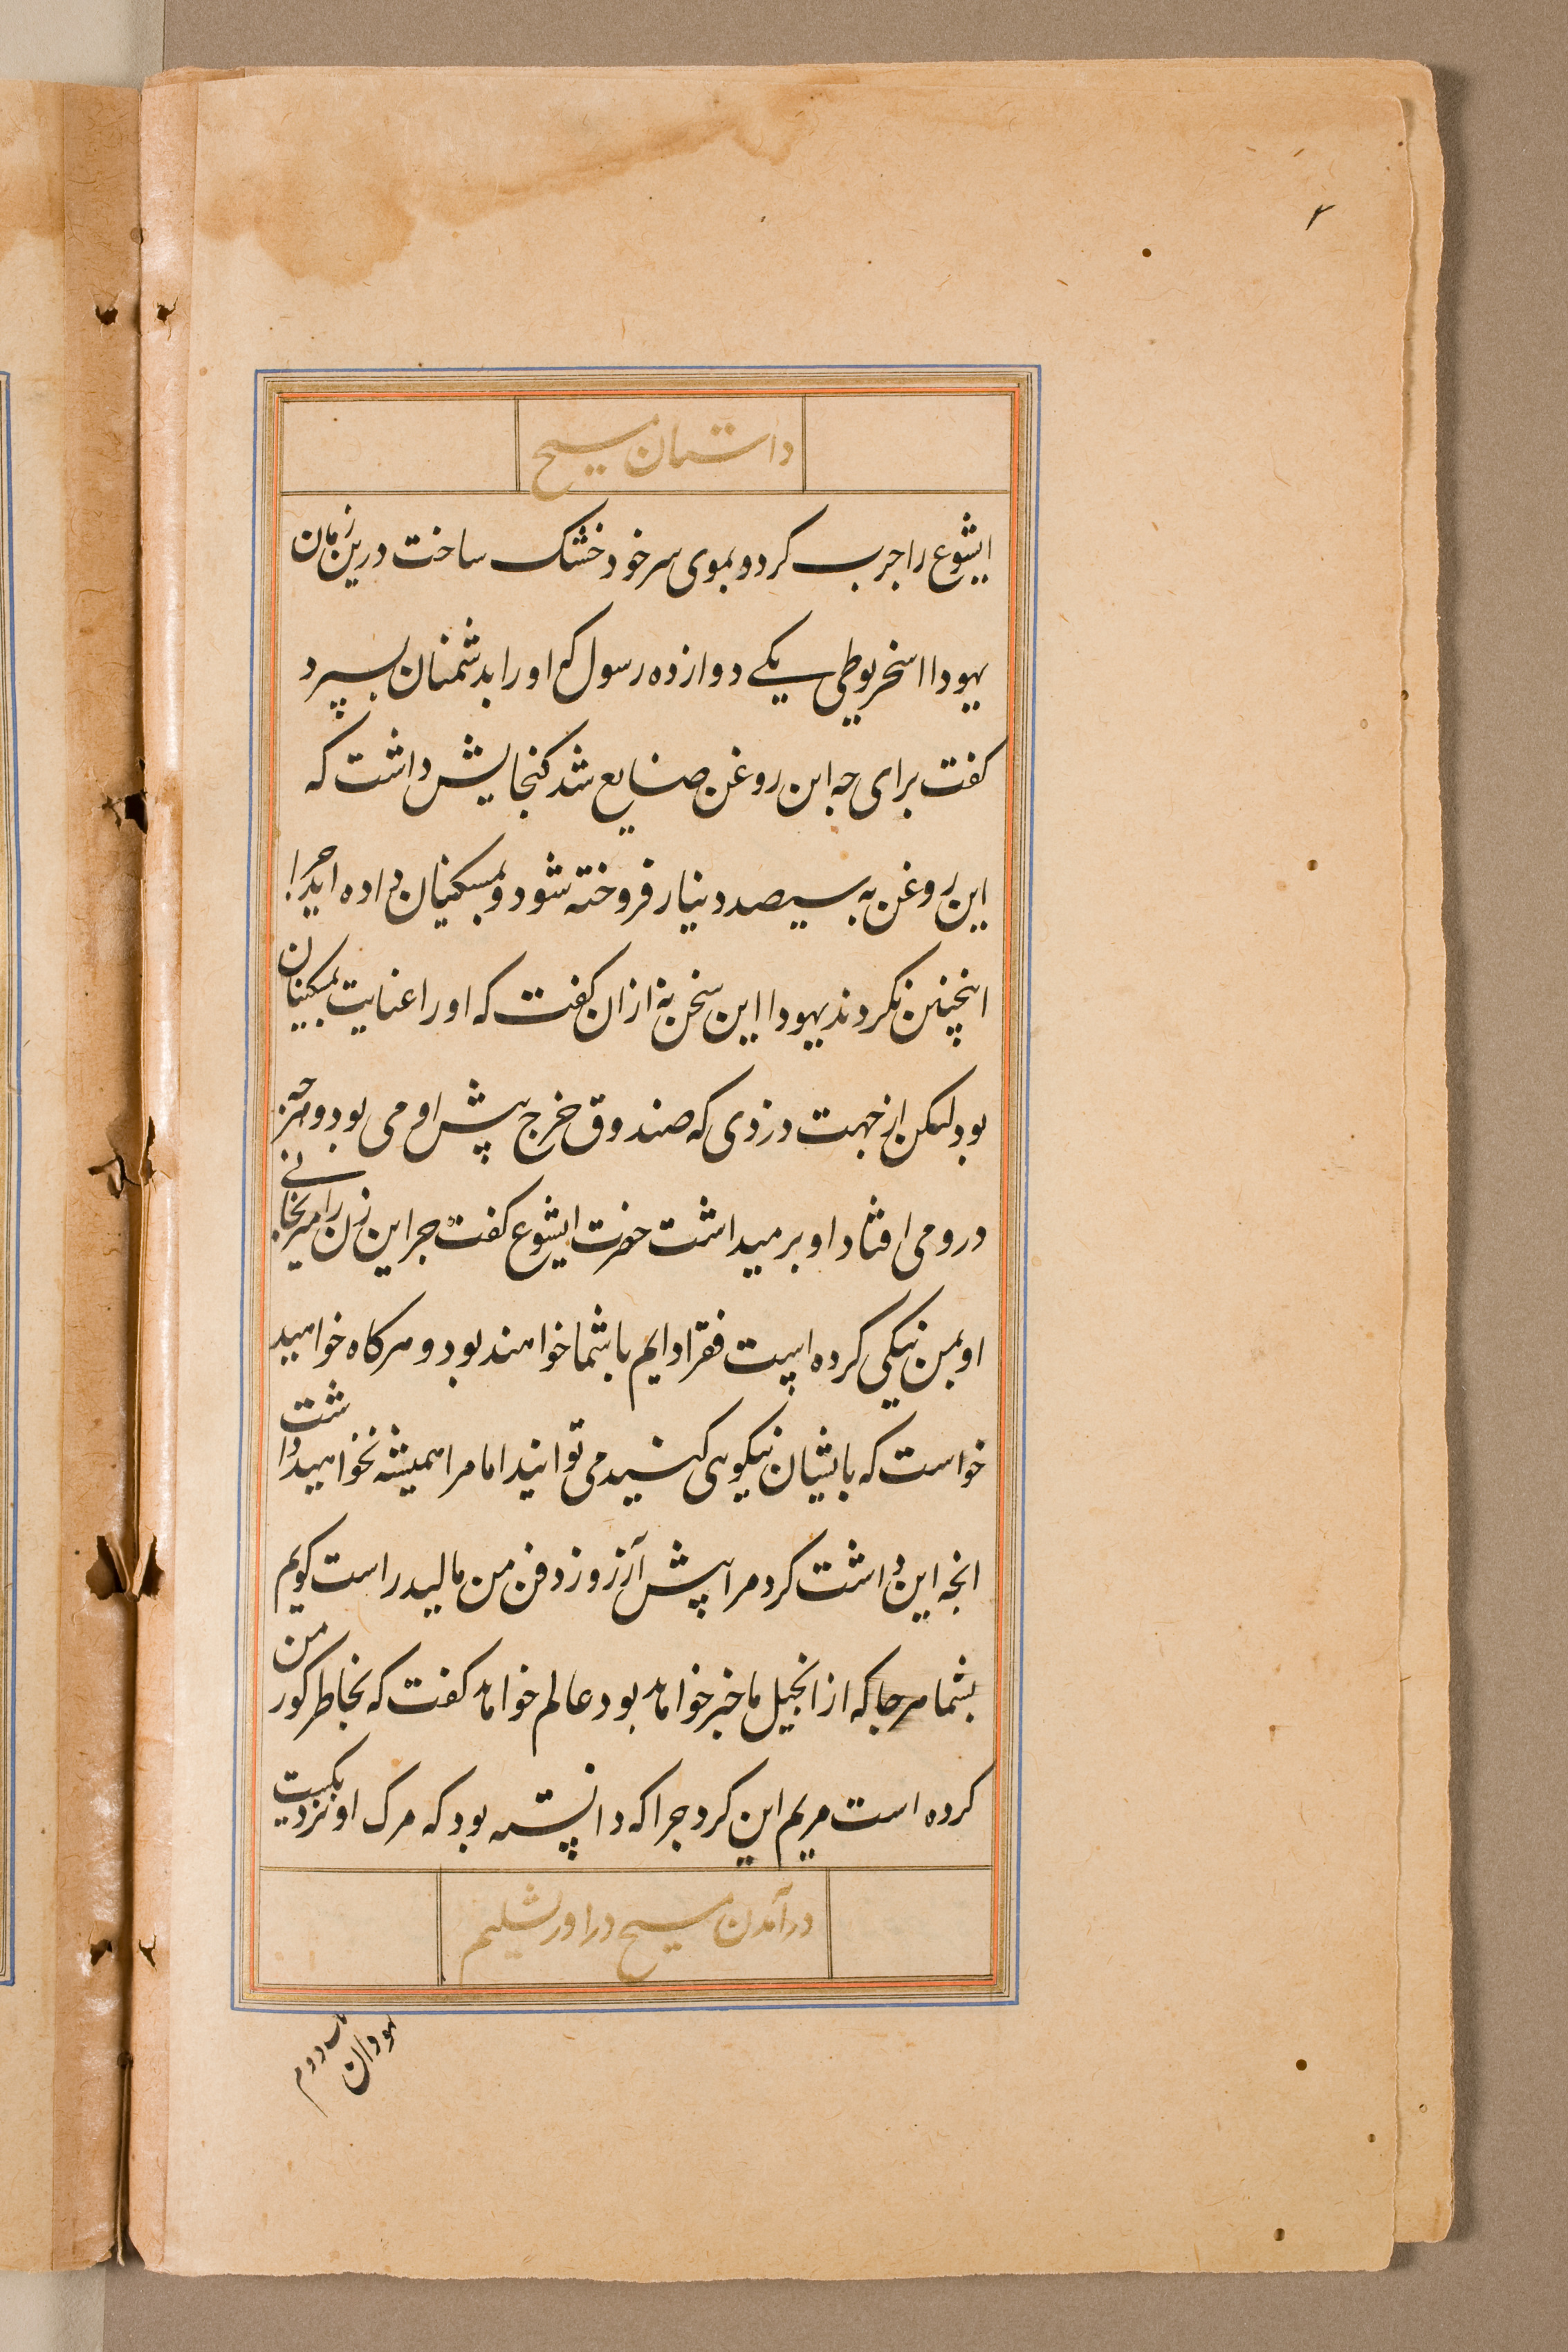 ۲
داستان مسیح
ایشوع را جرب کرد و بموی سر خود خشک ساخت درین زمان
یهودا اسخریوطی یکے دوازده رسول که او را بدشمنان بسپرد
کفت برای چه این روغن ضایع شد کنجایش داشت که
این روغن به سیصد دینار فروخته شود و بمسکینان داده اید چرا
اینچنین نکردند یهودا این سخن نه ازان کفت که او را عنایت بمسکینان
بود لیکن از جهت دزدی که صندوق خرج پیش او می بود و هر چیز
درو می افتاد او بر میداشت حضرت ایشوع کفت چرا این زن را میرنجانے
او بمن نیکی کرده است فقرا دایم با شما خواهند بود و هرکاه خواهید
خواست که بایشان نیکویی کنید می توانید اما مرا همیشه نخواهید داشت
انچه این داشت کرد مرا پیش از روز دفن من مالید راست کویم
بشما هر جا که از انجیل ما خبر خواهد بود عالم خواهد کفت که بخاطر کور من
کرده است مریم این کرد چرا که دانسته بود که مرک او نزدیکیست
درآمدن مسیح در اورشلیم
باب دوم